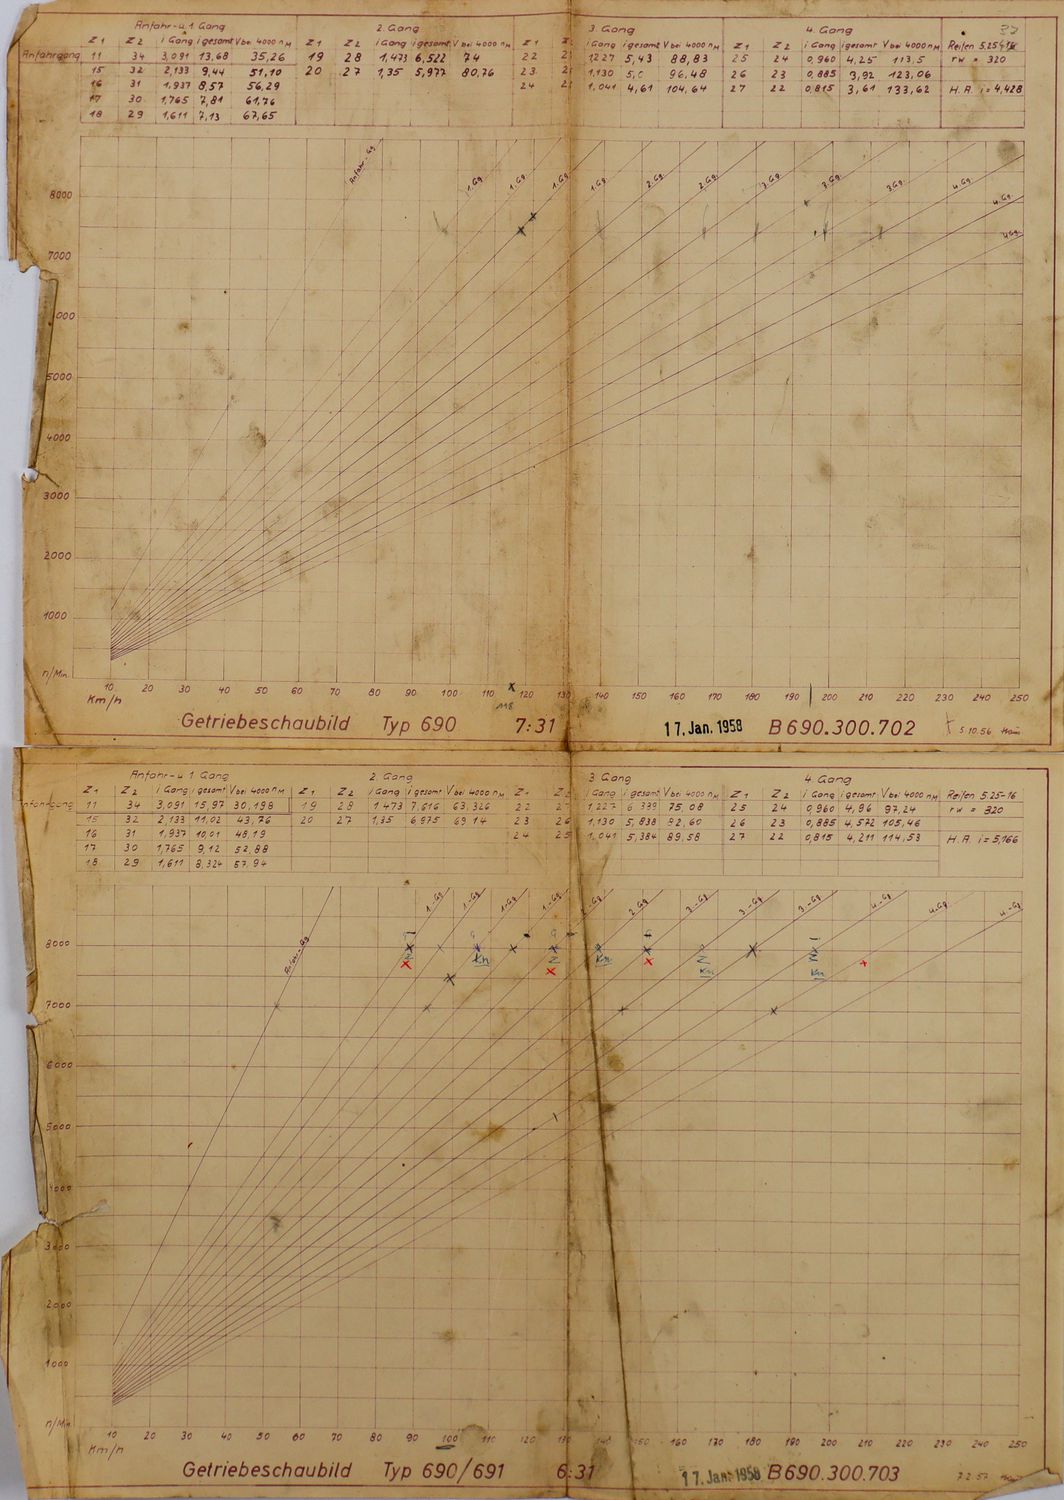 Anfahr-u.1.Gang 2.Gang 3.Gang 4.Gang 32
Z1 Z2 i Gang i gesamt V bei 4000 nM Z1 Z2 i Gang i gesamt V bei 4000 nM Z1 Z i Gang i gesamt V bei 4000 nM Z1 Z2 i Gang i gesamt V bei 4000 nM Reifen 5.25-16
Anfahrgang 11 34 3,091 13,68 35,26 19 28 1,473 6,522 74 22 2 1,227 5,43 88,83 25 24 0,960 4,25 113,5 rw = 320
15 32 2,133 9,44 51,10 20 27 1,35 5,977 80,76 23 2 1,130 5,0 96,48 26 23 0,885 3,92 123,06
16 31 1,937 8,57 56,29 24 2 1,041 4,61 104,64 27 22 0,815 3,61 133,62 H.A. i = 4,428
17 30 1,765 7,81 61,76
18 29 1,611 7,13 67,65
Anfahr-Gg 1.Gg. 1.Gg. 1.Gg. 1.Gg. 2.Gg. 2.Gg. 3.Gg. 3.Gg. 3.Gg. 4.Gg. 4.Gg. 4.Gg.
8000
7000
000
5000
4000
3000
2000
1000
n/Min
10 20 30 40 50 60 70 80 90 100 110 120 130 140 150 160 170 180 190 200 210 220 230 240 250
Km/h 118
Getriebeschaubild Typ 690 7:31 17. Jan. 1958 B 690.300.702 5.10.56
Anfahr-u 1 Gang 2. Gang 3 Gang 4. Gang
Z1 Z2 i Gang i gesamt V bei 4000 nM Z1 Z2 i Gang i gesamt V bei 4000 nM Z1 Z2 i Gang i gesamt V bei 4000 nM Z1 Z2 i Gang i gesamt V bei 4000 nM Reifen 5.25-16
Anfahrgang 11 34 3,091 15,97 30,198 19 28 1 473 7,616 63,326 22 2 1,227 6 339 75,08 25 24 0,960 4,96 97,24 rw = 320
15 32 2,133 11,02 43,76 20 27 1,35 6 975 69 14 23 26 1,130 5,838 82,60 26 23 0,885 4,572 105,46
16 31 1,937 10,01 48,19 24 25 1,041 5,384 89,58 27 22 0,815 4,211 114,53 H.A. i = 5,166
17 30 1,765 9,12 52,88
18 29 1,611 8,324 57,94
Anfahr-Gg 1.-Gg 1.-Gg 1.-Gg 1.-Gg 2.-Gg 2.-Gg 3.-Gg 3.-Gg 3.-Gg 4.-Gg 4.-Gg 4.-Gg
8000
Z Kn Z Kn Z Kn Kn
7000
6000
5000
4000
3000
2000
1000
n/Min
10 20 30 40 50 60 70 80 90 100 110 120 130 140 150 160 170 180 190 200 210 220 230 240 250
Km/h
Getriebeschaubild Typ 690/691 6:31 17. Jan. 1958 B 690.300.703 7.2.57